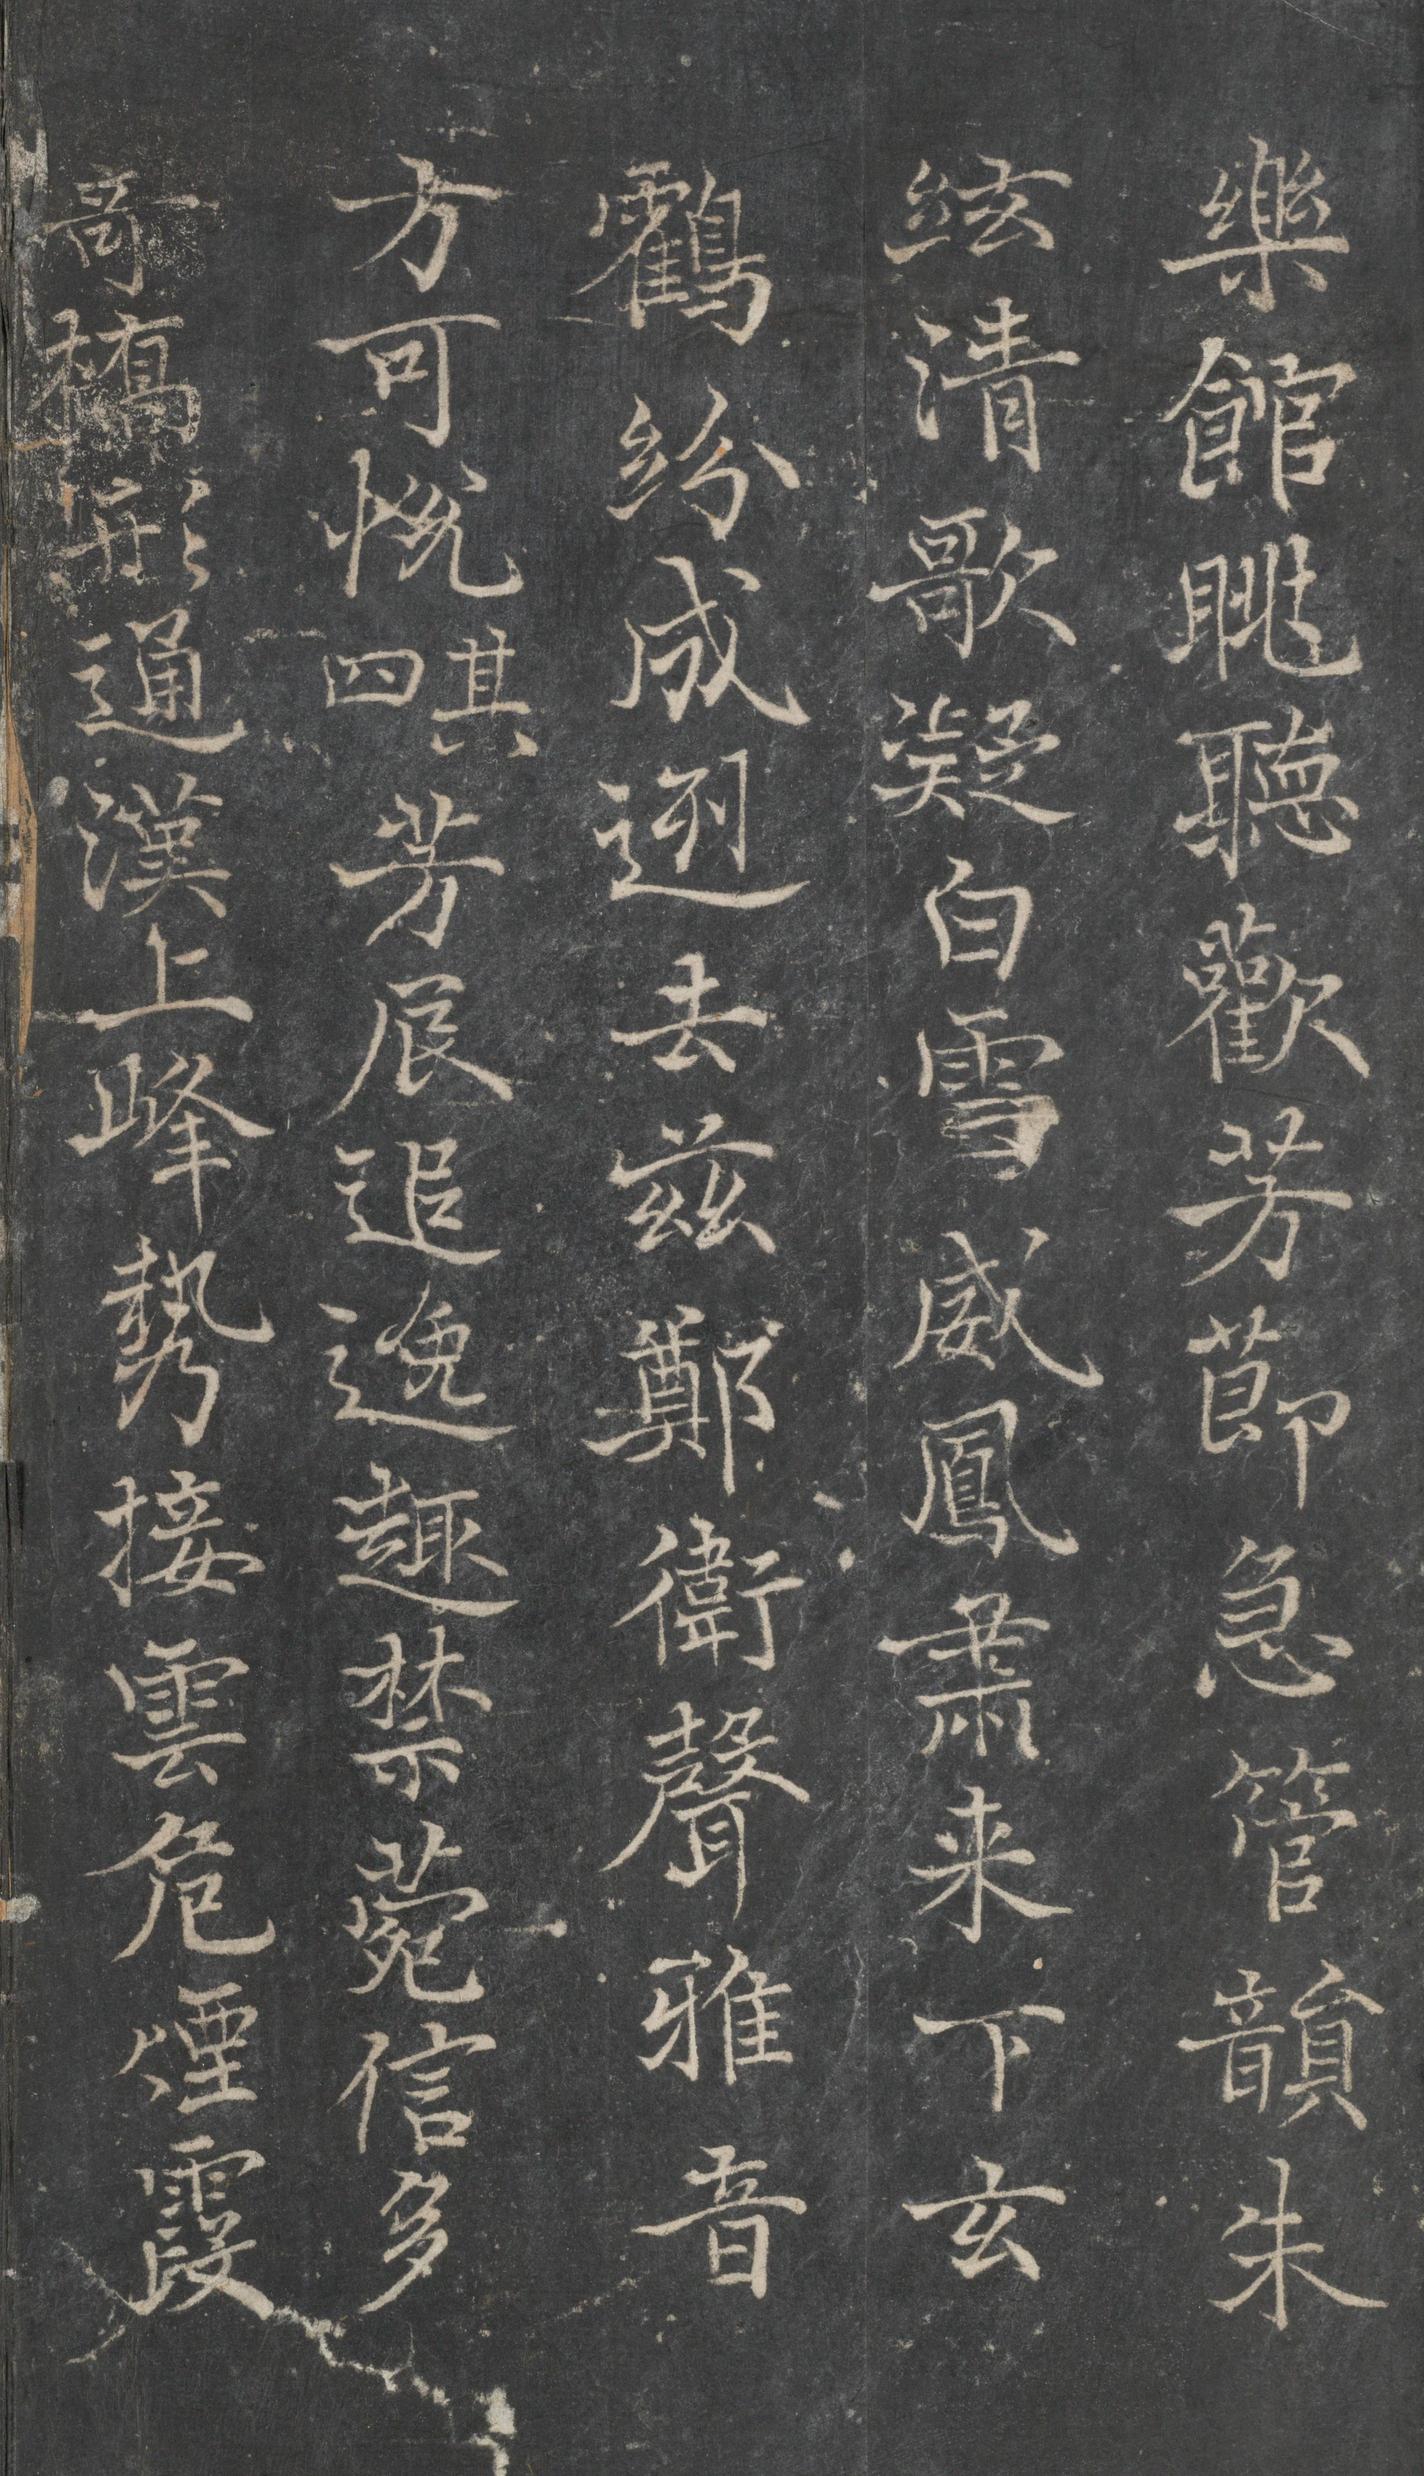 樂館眺聽歡芳節急管韻朱
絃清歌凝白雪威鳳肅来下玄
鸖紛成迾去茲鄭衛聲雅音
方可悦其四芳辰追逸趣禁菀信多
竒橋形通漢上峰勢接雲危煙霞